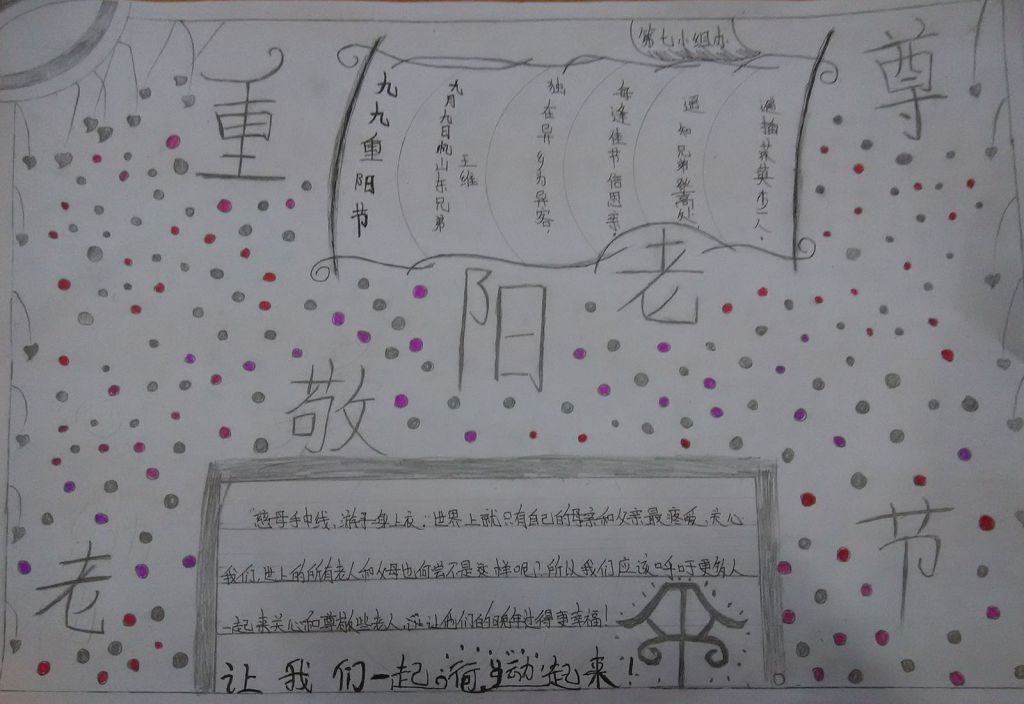 第七小组办
重
阳
节
尊
老
敬
老
九九重阳节
九月九日忆山东兄弟
王维
独在异乡为异客，
每逢佳节倍思亲。
遥知兄弟登高处，
遍插茱萸少一人。
慈母手中线，游子身上衣。世界上就只有自己的母亲和父亲最疼爱、关心
我们，世上的所有老人和父母也何尝不是这样呢？所以我们应该呼吁更多的人
一起来关心和尊敬些老人，让他们的晚年过得更幸福！
让我们一起行动起来！